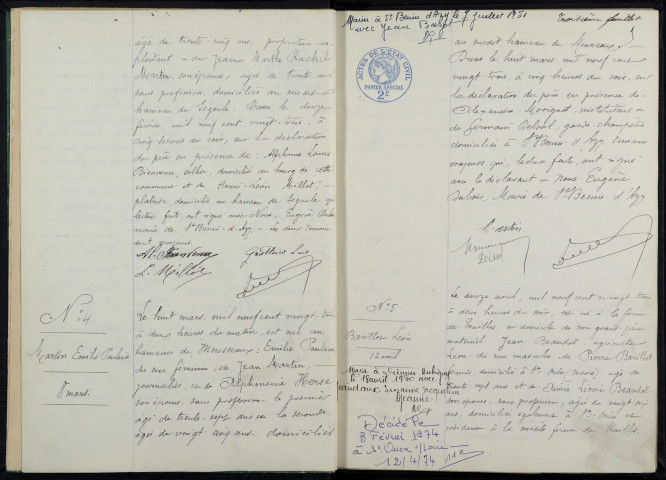 âgé de trente cinq ans, propriétaire ex-
ploitant et de Jeanne Marthe Rachel
Martin, son épouse, âgée de trente ans
sans profession, domiciliés au
hameau de Segoule. Dressé le douze
février, mil neuf cent vingt-trois, à
cinq heures du soir, sur la déclaration
du père en présence de: Alphonse Louis
Bienvenu, sellier, domicilié au bourg de cette
commune et de Henri Léon Millot,
plâtrier, domicilié au hameau de Segoule qui
lecture faite, ont signé avec Nous, Eugène Dubois
maire de St Benin d'Azy. Les deux témoins
sont majeurs.
L. Millot
No: 4
Martin Emilie Pauline
8 mars.
Le huit mars, mil neuf cent vingt-trois
à deux heures du matin, est née au
hameau de Mousseaux: Emilie Pauline
du sexe féminin, de Jean Martin,
journalier et de Alphonsine Herse
son épouse, sans profession, le premier
âgé de trente-sept ans et la seconde
âgée de vingt cinq ans, domiciliés
Mariée à St Benin d'Azy le 7 juillet 1951
avec Jean
Troisième feuillet
ACTES DE L'ETAT CIVIL
PAPIER SPECIAL
2F
au susdit hameau de Mousseaux.
Dressé le huit mars mil neuf cent
vingt trois à cinq heures du soir, sur
la déclaration du père en présence de
Alexandre instituteur et
de Germain Delval, garde-champêtre
domiciliés à St Benin d'Azy témoins
majeurs qui, lecture faite, ont signé
avec le déclarant et Nous Eugène
Dubois, Maire de St Benin d'Azy
Martin
No: 5
Barillot Léon
12 avril
Marié à
le 18 avril 1950 avec
Suzanne Jacqueline
Jeanne
Décédé le
8 Février 1974
à St Ouen s/Loire
12/4/74
Le douze avril, mil neuf cent vingt trois
à deux heures du soir, est né à la ferme
de Trailles, au domicile de son grand père
maternel Jean Beaudot, agriculteur
Léon, du sexe masculin de Pierre Barillot
domicilié à St (Nièvre), âgé de
trente sept ans et de Marie Léonie Beaudot
son épouse, sans profession, âgée de vingt
ans, domiciliée également à St
résidant à la susdite ferme de Trailles.